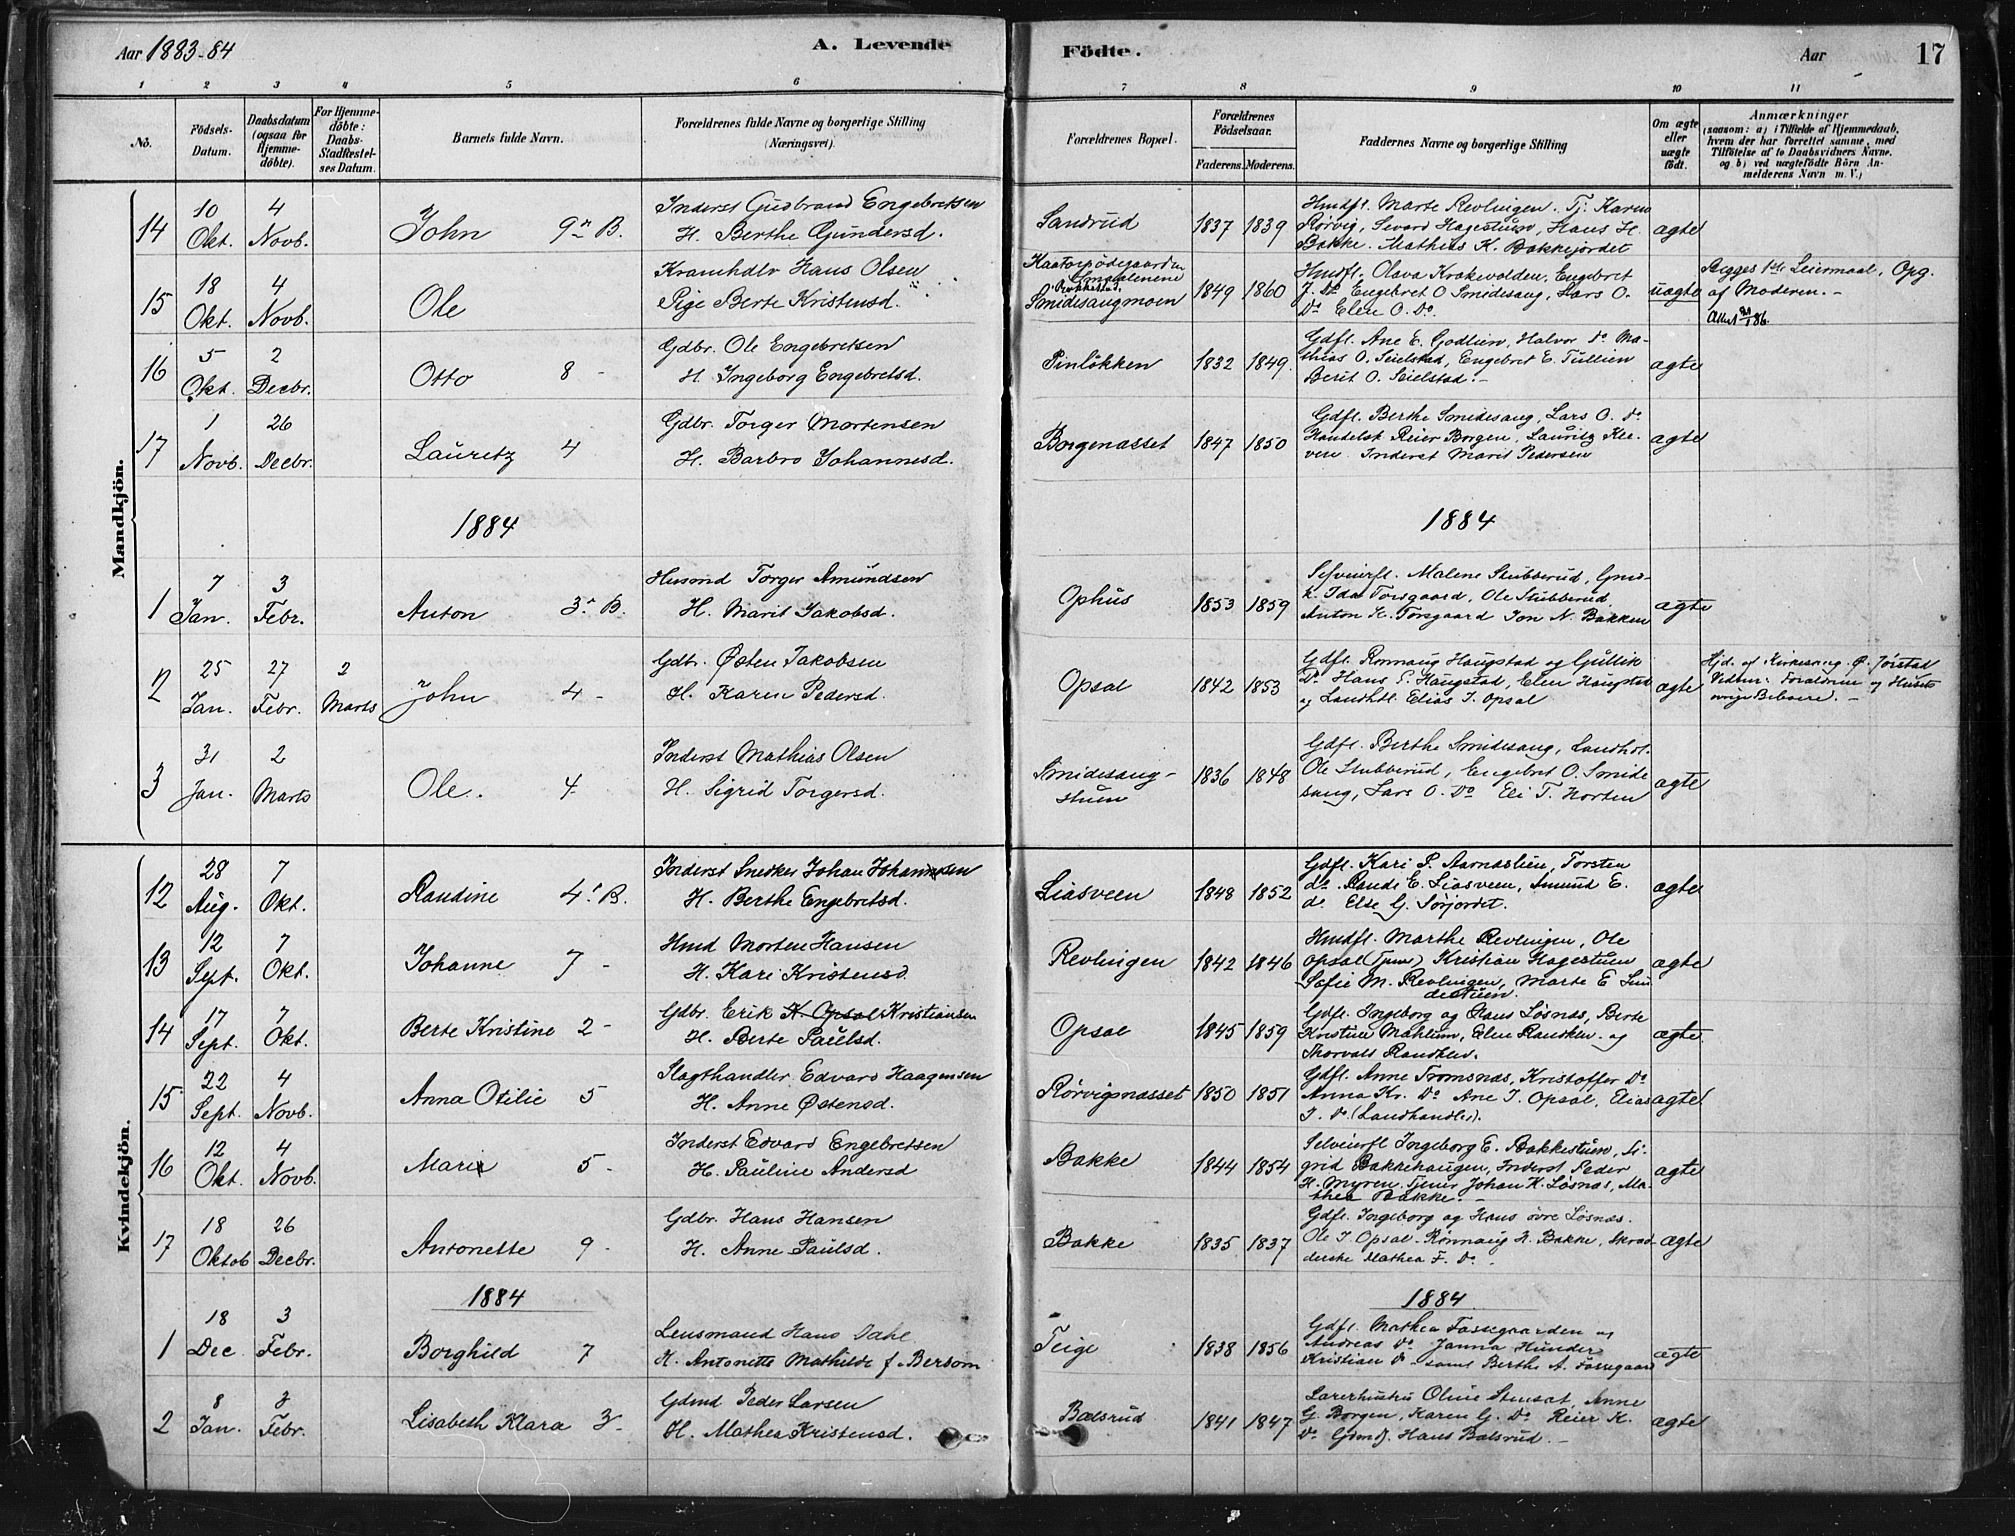 Aar 1883-84
A. Levende
Födte.
Aar
17
1 2 3 4 5 6 7 8 9 10 11
No.
Födsels-
Datum.
Daabsdatum
(ogsaa for
Hjemme-
döbte).
For Hjemme-
döbte:
Daabs-
Stadfæstel-
ses Datum.
Barnets fulde Navn.
Forældrenes fulde Navne og borgerlige Stilling
(Næringsvei).
Forældrenes Bopæl.
Forældrenes
Födselsaar.
Faderens. Moderens.
Faddernes Navne og borgerlige Stilling
Om ægte
eller
uægte
födt.
Anmærkninger
(saasom: a) i Tilfælde af Hjemmedaab,
hvem der har forrettet samme, med
Tilföielse af to Daabsvidners Navne,
og b) ved uægtefödte Börn An-
melderens Navn m. V.)
Mandkjön.
14
10 Okt.
4 Novb.
John 9n B.
Inderst Gudbrand Engebretsen
H. Berthe Gundersd.
Sandrud
1837 1839
Hmdfl. Marte Revlingen. Tj. Karen
Rørvig, Sevard Hagestuen, Hans H.
Bakke. Mathias K. Bakkejordet
ægte
15
18 Okt.
4 Novb.
Ole
Kramhdlr Hans Olsen
Pige Berte Kristensd.
Smaalenene
Smidesangmoen
1849 1860
Hmdfl. Olava Krokevolden, Engebret
J. Do Engebret O Smidesang, Lars O.
Do Elen O. Do.
uægte
Begges 1ste Leiermaal. Opg.
af Moderen.-
16
5 Okt.
2 Decbr.
Otto 8 -
Gdbr. Ole Engebretsen
H. Ingeborg Engebretsd.
Pinløkken
1832 1849.
Gdfl. Ane E. Godlien, Halvor Do Ma-
thias O. Seielstad, Engebret E. Tullien
Berit O. Seielstad.-
ægte
17
1 Novb.
26 Decbr.
Lauretz 4
Gdbr. Torger Mortensen
H. Barbro Johannesd.
Borgenæsset
1847 1850
Gdfl. Berthe Smidesang, Lars O. Do
Handelsk Reier Borgen, Lauritz Kle-
ven Inderst Marit Pedersen
ægte
1884
1884
1
7 Jan.
3 Febr.
Anton 3n B.
Husmd Torger Amundsen
H. Marit Jakobsd.
Ophus
1853 1859
Selveierfl. Malene Stubberud,
Ida Torsgaard, Ole Stubberud
Anton K. Torsgaard Jon N. Bakken
ægte
2
25 Jan.
27 Febr.
2 Marts
John 4 -
Gdbr. Østen Jakobsen
H. Karen Pedersd.
Opsal
1842 1853
Gdfl. Rønnaug Haugstad og Gullik
Do Hans P. Haugstad, Elen Haugstad
og Landhdl. Elias J. Opsal
ægte
Hjd. af Kirkesang. Ø. Jørstad
Vidner: Forældrene og Husets
øvrige Beboere.-
3
31 Jan.
2 Marts
Ole. 4
Inderst Mathias Olsen
H. Sigrid Torgersd.
Smidesang-
stuen
1836 1848
Gdfl. Berthe Smidesang, Landhdl.
Ole Stubberud, Engebret O. Smide
sang, Lars O. Do Eli T. Horten
ægte
Kvindekjön.
12
28 Aug.
7 Okt.
Randine 4n B.
Inderst Snedker Johan Johannesen
H. Berthe Engebretsd.
Liasveen
1848 1852
Gdfl. Kari P. Aarnæslien, Torsten
do. Rande E. Liasveen, Amund E.
do. Else G. Sørjordet.
ægte
13
12 Sept.
7 Okt.
Johanne 7 -
Hmd Morten Hansen
H. Kari Kristensd.
Revlingen
1842 1846
Hmdfl. Marthe Revlingen, Ole
Opsal (Tjener) Kristian Hagestuen
Sofie M. Revlingen, Marte E Sun
destuen.
ægte
14
17 Sept.
7 Okt.
Berte Kristine 2 -
Gdbr. Erik K. Opsal Kristiansen
H. Berte Paulsd.
Opsal
1845 1859
Gdfl. Ingeborg og Hans Løsnæs, Berte
Kristine Mæhlum, Elen Randklev og
Thorvald Randklev.
ægte
15
22 Sept.
4 Novb.
Anna Otilie 5
Slagthandler Edvard Haagensen
H. Anne Østensd.
Rørvigsnæsset
1850 1851
Gdfl. Anne Tromsnæs, Kristoffer Do
Anna Kr. Do Ane J. Opsal, Elias
J. Do (Landhandler).
ægte
16
12 Okt.
4 Novb.
Marie 5 -
Inderst Edvard Engebretsen
H. Pauline Andersd
Bakke
1844 1854
Selveierfl Ingeborg E. Bakkestuen, Si-
grid Bakkehaugen, Inderst Peder
H. Myren. Tjener Johan K. Løsnæs, Ma-
thea Bakke.-
ægte
17
18 Oktob
26 Decbr.
Antonette 9 -
Gdbr. Hans Hansen
H. Anne Paulsd.
Bakke
1835 1837
Gdfl. Ingeborg og Hans øvre Løsnæs.
Ole J. Opsal. Rønnaug H. Bakke, Skræd-
derske Mathea F. Do.
ægte
1884
1884
1
18 Dec
3 Febr.
Borghild 7
Lensmand Hans Dahl
H. Antonette Mathilde f. Bersom
Teige
1838 1856
Gdfl. Mathea Fossegaarden og
Andreas Do Janna Hunder
Kristian Do samt Berthe A. Fossegaard
ægte
2
8 Jan.
3 Febr.
Lisabeth Klara 3 -
Gdmd Peder Larsen
H. Mathea Kristensd.
Bælsrud
1841 1847
Lærerhustru Oline Stensæt, Anne
G. Borgen, Karen G. Do Reier K.
Do Gdmd. Hans Bælsrud.-
ægte